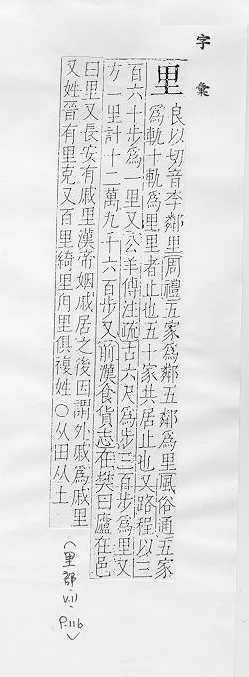 字彙
里 良以切音李鄰里周禮五家為鄰五鄰為里風俗通五家
為軌十軌為里里者止也五十家共居止也又路程以三
百六十步為一里又公羊傳注疏古六尺為步三百步為里又
方一里計十二萬九千六百步又前漢食貨志在埜曰廬在邑
曰里又長安有戚里漢帝姻戚居之後因謂外戚為戚里
又姓晉有里克又百里綺里甪里俱複姓○从田从土
(里部.V.11
P.11b)